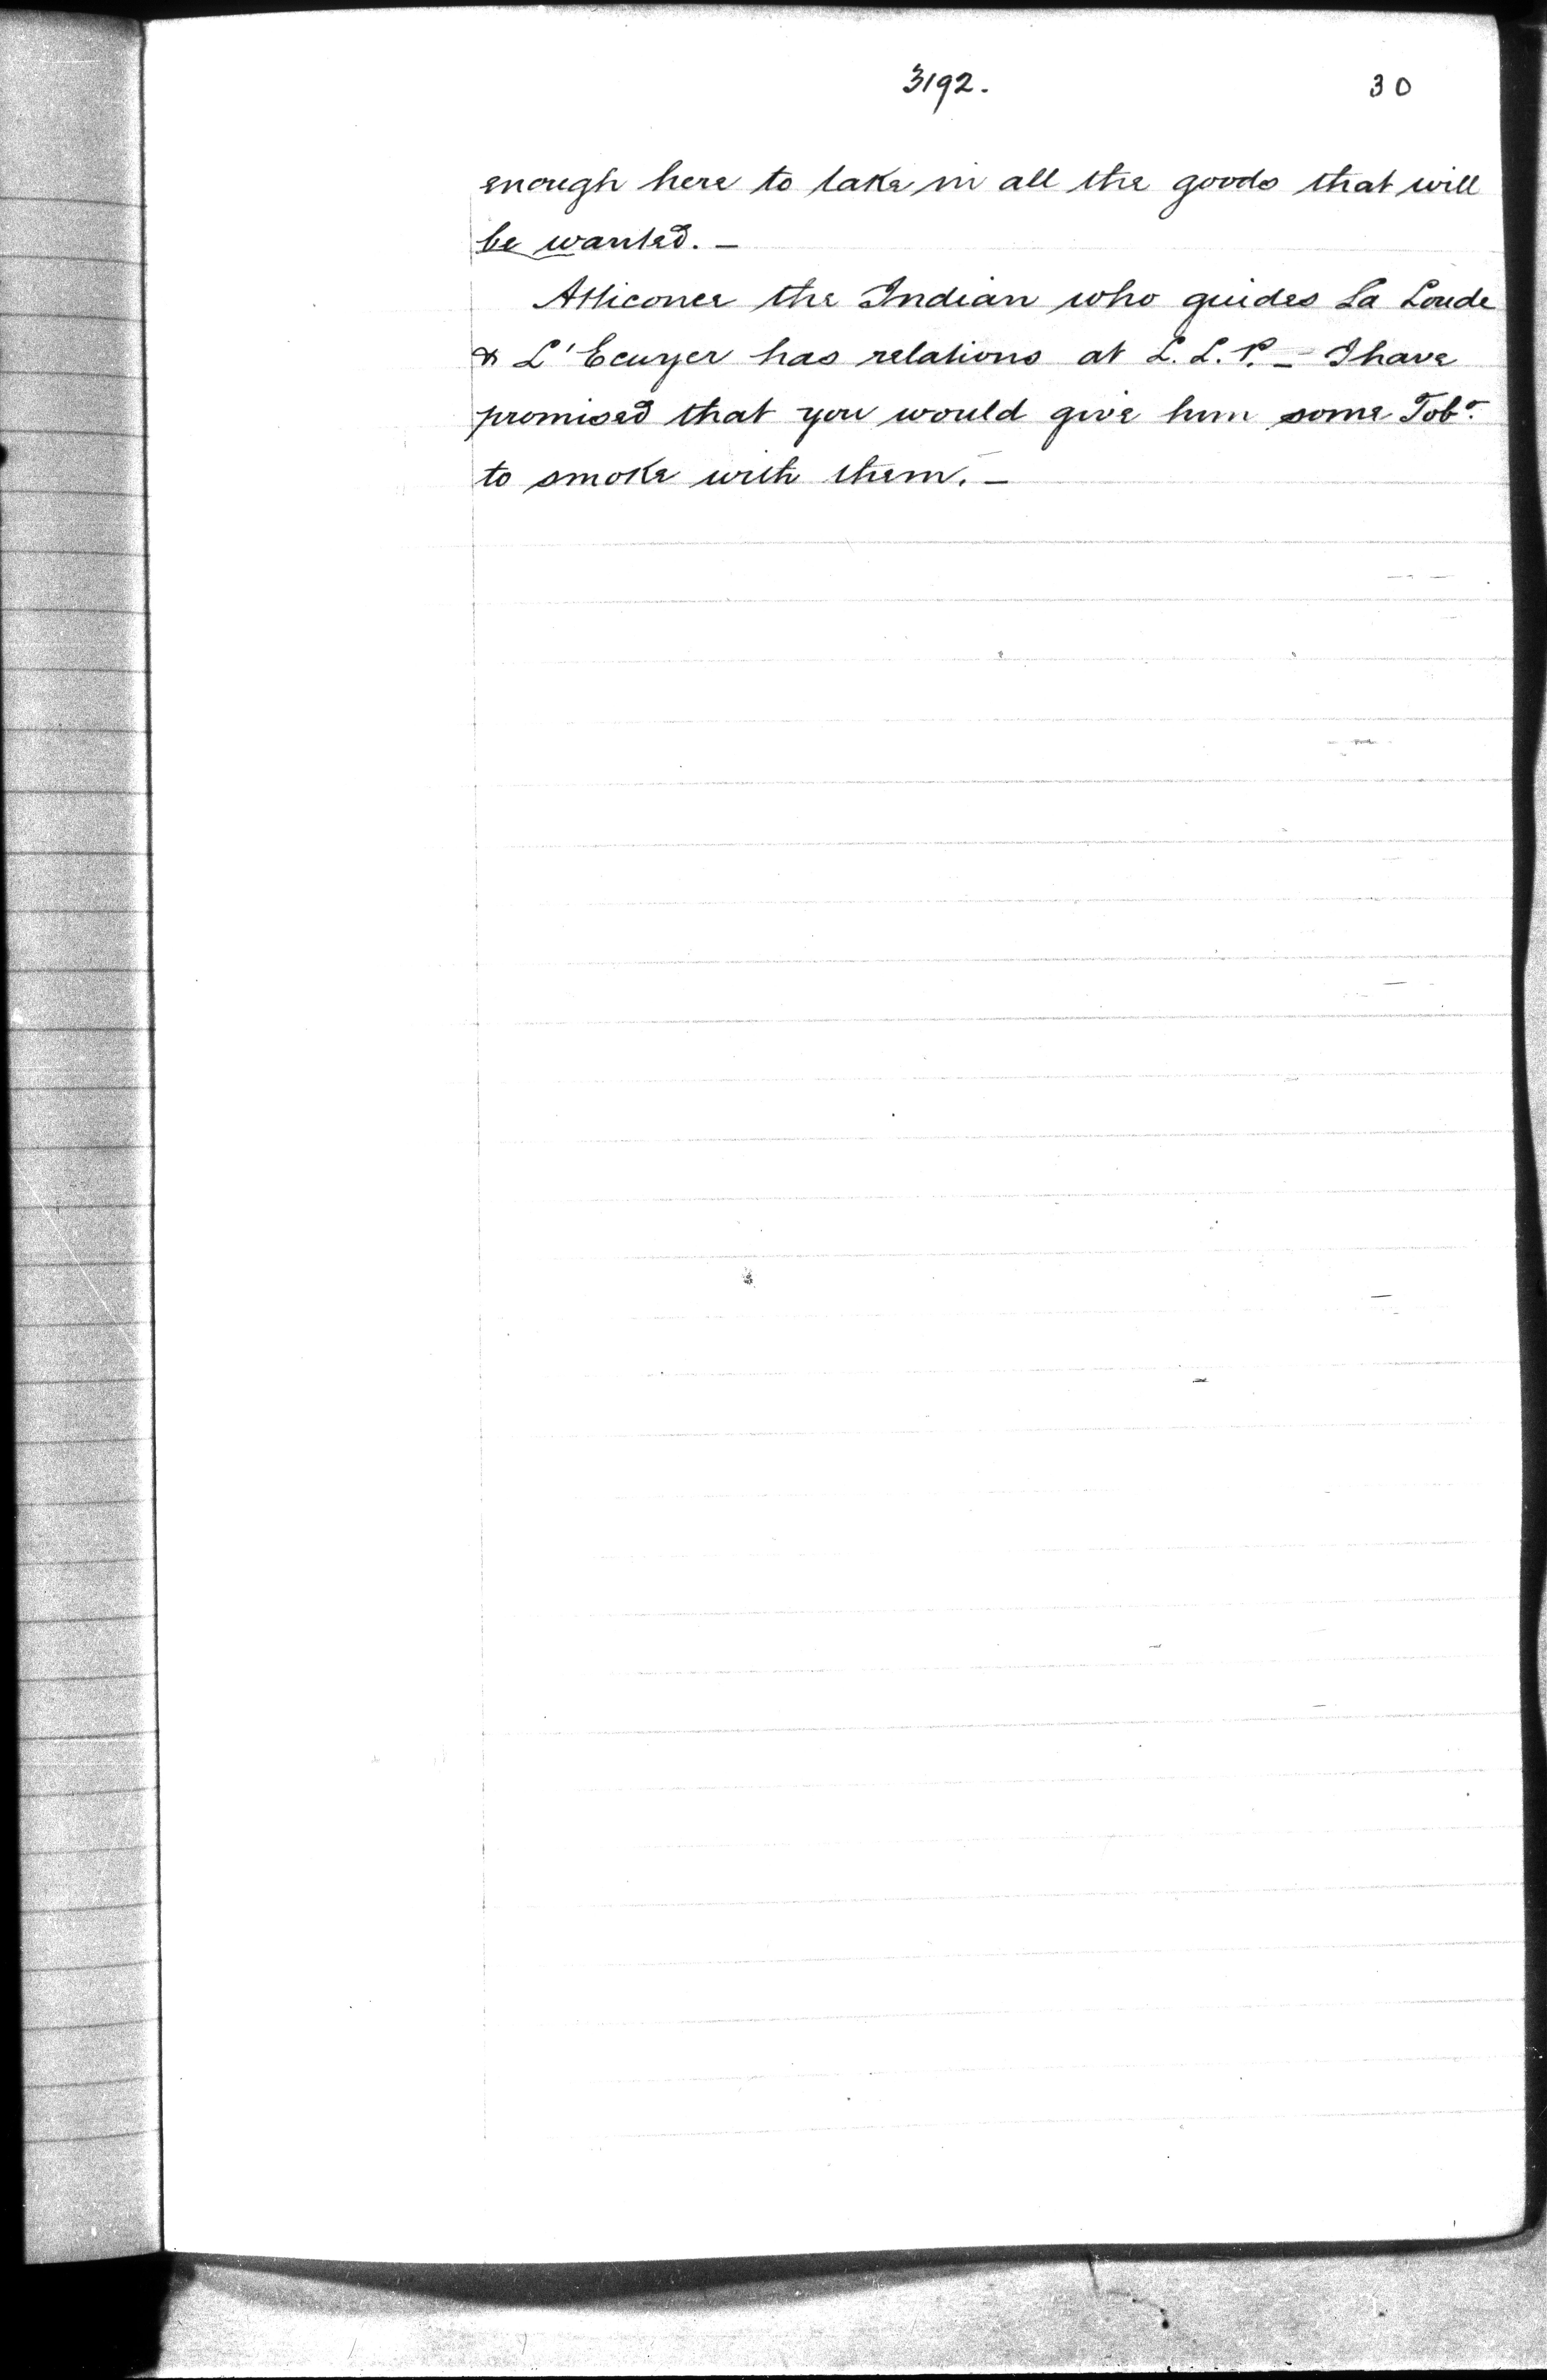 3192. 30
enough here to take in all the goods that will
be wanted. —
Atticonce the Indian who guides La Loude
& L'Ecuyer has relations at L. L. P. — I have
promised that you would give him some Tobo.
to smoke with them. —